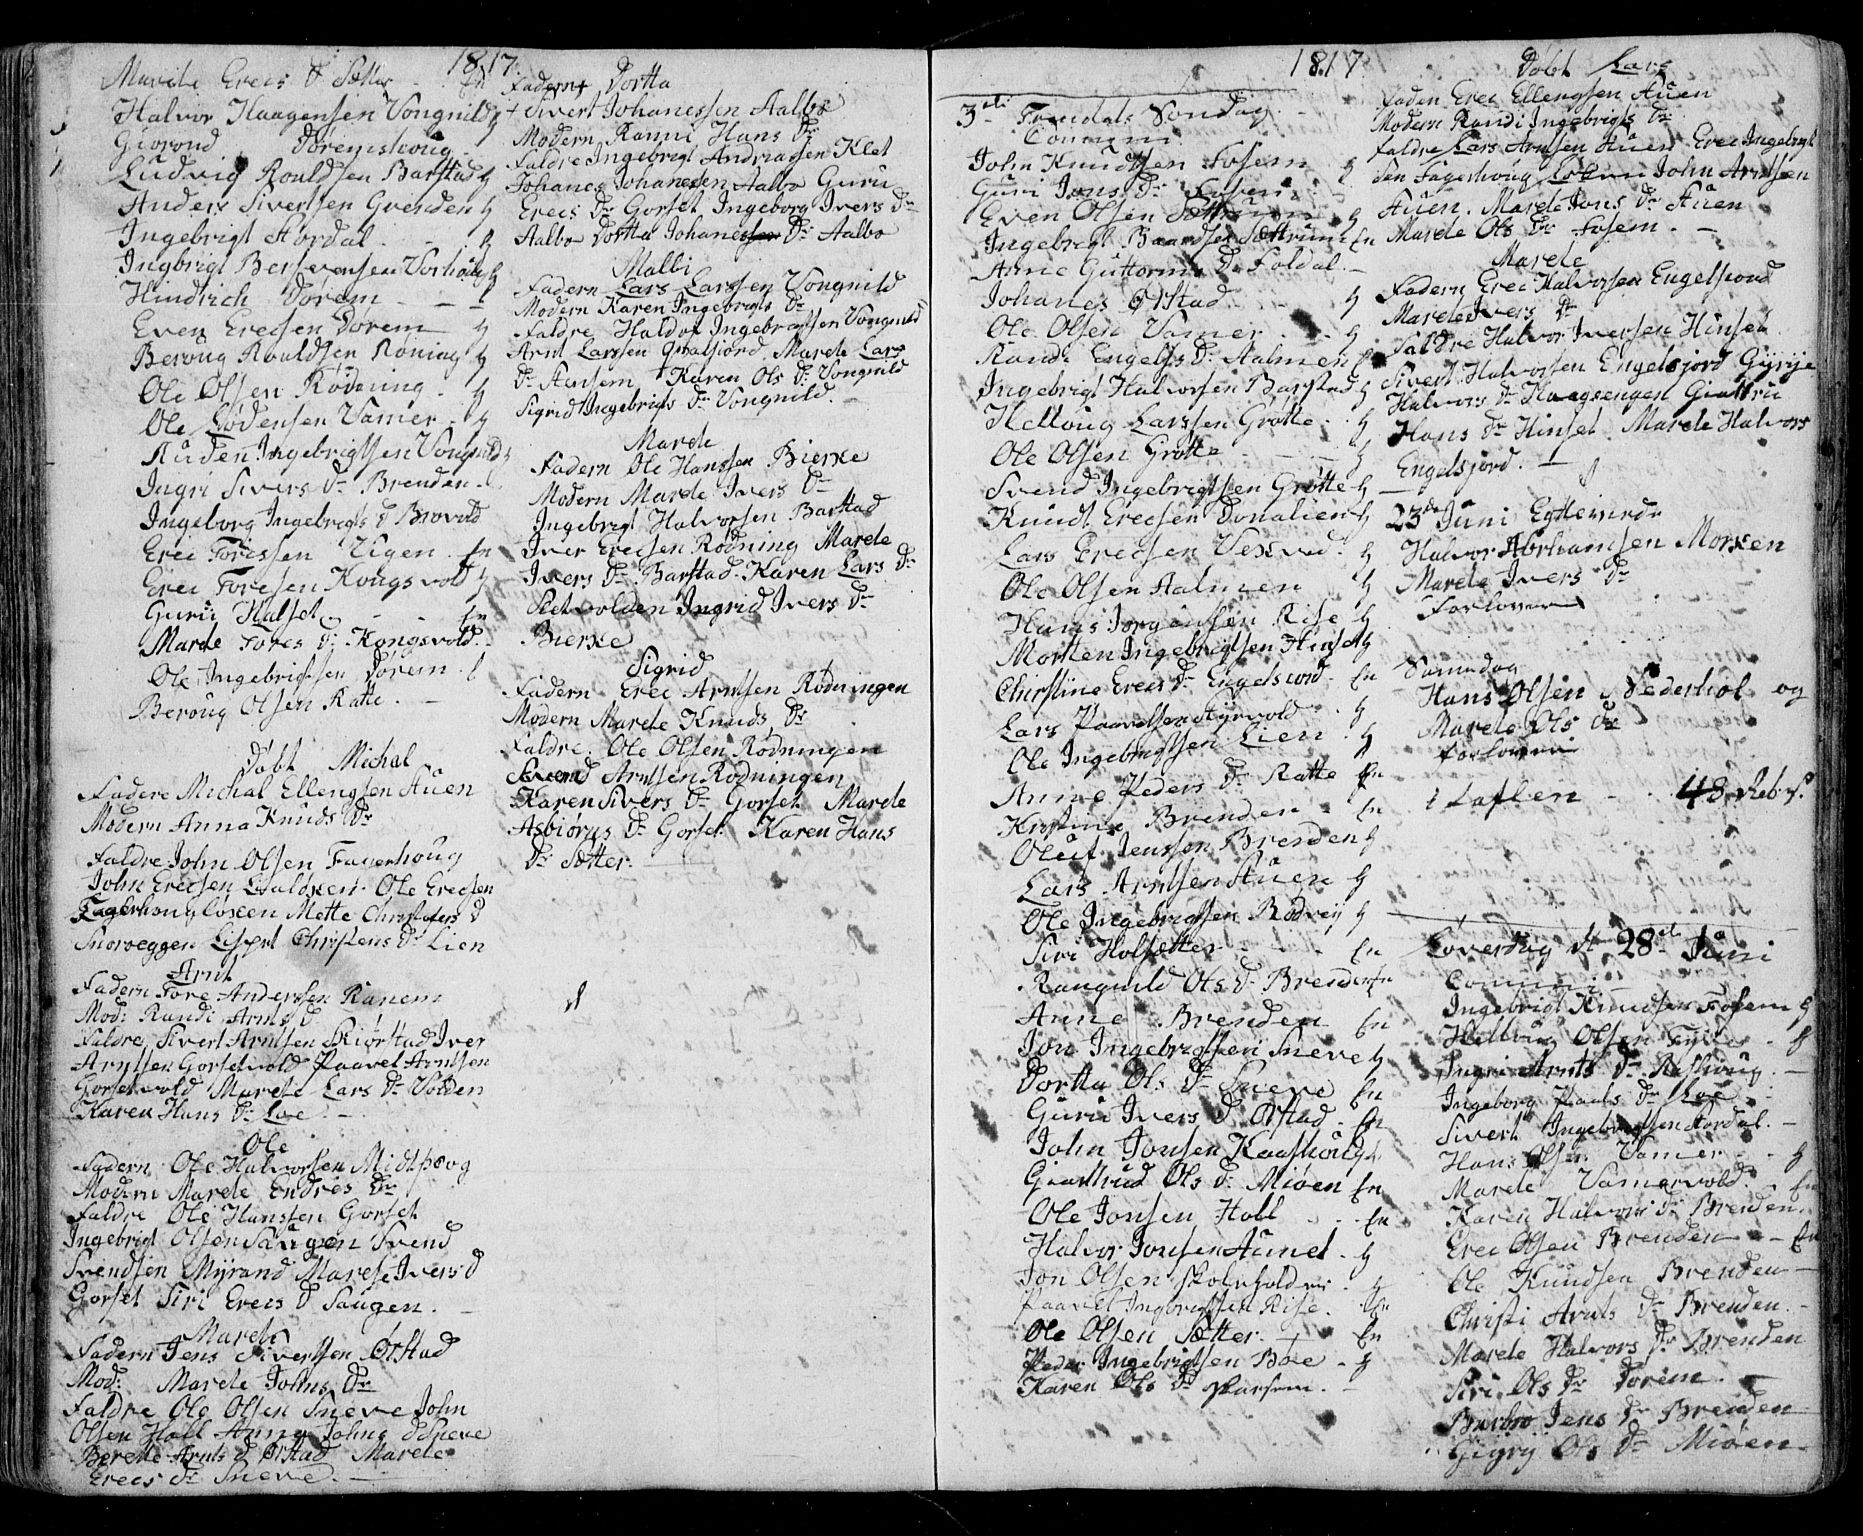 1817
Marite Erecs D Sætter - En
Halvor Haagensen Vongnild
Guorond Døremshoug
Ludvig Rouldsen Barstad
Anders Sivertsen Grenden
Ingebrigt Hordal
Ingbrigt Versvensen Vorhoug
Hindrich Dørem
Even Erecsen Dørem
Beroug Rouldsen Røning
Ole Olsen Rødening
Ole Lødensen Vamer
Auden Ingebrigtsen Vongnild
Ingri Sivers Dr Brenden
Ingeborg Ingebrigts D Brovold
Erec Toresen Vigen En
Erec Toresen Kongsvold
Guru Halset En
Marde Tores D: Kongsvold
Ole Ingebrigtsen Dørem
Beroug Olsen Ratte
Døbt Michal
Fadere Michal Ellengsen Auen
Modern Anna Knuds Dr
Faldre John Olsen Fagerhoug
John Erecsen Ole Erecsen
Fagerhoug Mette Christofers D
Snoreggen Lispet Christens Dr Lien
Arnt
Fadern Tore Andersen Ranem
Mod: Randi Arnts D
Faldre Sivert Arntsen Kiørstad Iver
Arntsen Gorsetvold Paavel Arntsen
Gorsetvold Marete Lars Dr Volden
Karen Hans Dr Loe
Ole
Fadern Ole Halvorsen Midtskog
Modern Marete Endres Dr
Faldre Ole Hansen Gorset
Ingebrigt Olsen Saugen Svend
Svendsen Myrand Marete Ivers D
Gorset Siri Erecs D Saugen
Marete
Fadern Jens Sivertsen Ørstad
Mod: Marete Johns Dr
Faldre Ole Olsen Sneve John
Olsen Holl Anne Johns D Sneve
Berette Arnts D Ørstad Marete
Erecs Dr Sneve
Fadern Dortta
Sivert Johanessen Aalbo
Modern Ranni Hans Dr
Faldre Ingebrigt Andriassen Klet
Johanes Johanesen Aalbo Guru
Erecs Dr Gorset Ingeborg Ivers Dr
Aalbo Dortta Johanes Dr Aalbo
Malbi
Fadern Lars Larssen Vongnild
Modern Karen Ingebrigts Dr
Faldre Haldor Ingebrigtsen Vongnild
Arnt Larssen Marete Lars
Dr Stensem Karen Ols Dr Vongnild
Sigrid Ingebrigts Dr Vongnild
Marete
Fadern Ole Hanssen Bierke
Modern Marete Ivers Dr
Ingebrigt Halvorsen Barstad
Iver Erecsen Rødning Marete
Ivers Dr Barstad Karen Lars Dr
Sletvolden Ingrid Ivers Dr
Bierke
Sigrid
Fadern Erec Arntsen Rødningen
Modern Marete Knuds Dr
Faldre Ole Olsen Rødningen
Svend Arntsen Rødningen
Karen Sivers Dr Gorset Marete
Asbiørns Dr Gorset Karen Hans
Dr Sætter
1817
3die Søndag
Commun:
John Knudtsen Fosem
Guri Jons Dr
Even Olsen Sættrum
Ingebrigt Baardsen Sættrum En
Anne Guttorms Dr Foldal
Johanes Ørstad
Ole Olsen Vamer
Randi Engelfs Dr Aalmen
Ingebrigt Halvorsen Barstad
Kelloug Larssen Grøtte
Ole Olsen Grøtte
Svend Ingebrigtsen Grøtte
Knudt Erecsen Donalien
Lars Erecsen Vekved
Ole Olsen Aalmen
Hans Jørgensen Rise
Morten Ingebrigtsen Hinset
Christine Erecs Dr Engelsiord En
Lars Paavelsen Hyrvold
Ole Ingebrigtsen Lien
Anne Peders Dr Ratte En
Kristine Brenden En
Oluf Jenssen Brenden
Lars Arntsen Auen
Ole Ingebrigtsen Rødveij
Siri Holsætter En
Rangnild Ols Dr Brenden En
Anne Brenden En
Jon Ingebrigtsen Sneve
Dortta Ols Dr Sneve En
Guru Ivers D Ørstad En
John Jonsen Kaashoug
Giartrud Ols Dr Miøen En
Ole Jonsen Holl En
Halvor Jonsen Aunet
Jon Olsen Skoleholder
Paavel Ingebrigtsen Rise En
Ole Olsen Sætter En
Peder Ingebrigtsen Bøe
Karen Ols Dr
Døbt Lars
Faden Erec Ellengsen Auen
Modern Randi Ingebrigts Dr
Faldre Lars Arntsen Auen Erec Ingebrigt
sen Fagerhoug John Arntsen
Auen. Marete Jons Dr Auen
Marete Ols Dr Fosem
Marete
Fadern Erec Halvorsen Engelsiord
Marete Ivers Dr
Faldre Halvor Iversen Hinset
Sivert Halvorsen Engelsjord Gurye
Halvors Dr Haagsengen Giattru
Hans Dr Hinset Marete Halvors
Engelsjord
23de Juni Egteviede
Halvor Abrhamsen Morken
Marete Ivers Dr
Forlover
Samedag
Hans Olsen Nederhol og
Marete Ols Dr
Forlover
i taflen 48 Reb s.
Løverdag d 28de Juni
Commun:
Ingebrigt Knudsen Fosem
Helloug Olsen
Ingri Arnts Dr Rashoug
Ingeborg Paals Dr Loe
Sivert Ingebrigtsen Hordal
Hans Olsen Vamer
Marete Vamervold En
Karen Halvors Dr Brenden
Erec Olsen Brenden En
Ole Knudsen Brenden
Christi Arnts Dr Brenden
Marete Halvors Dr Brenden
Siri Ols Dr Dørem
Barbro Jens Dr Brenden
Gigry Ols Dr Miøen